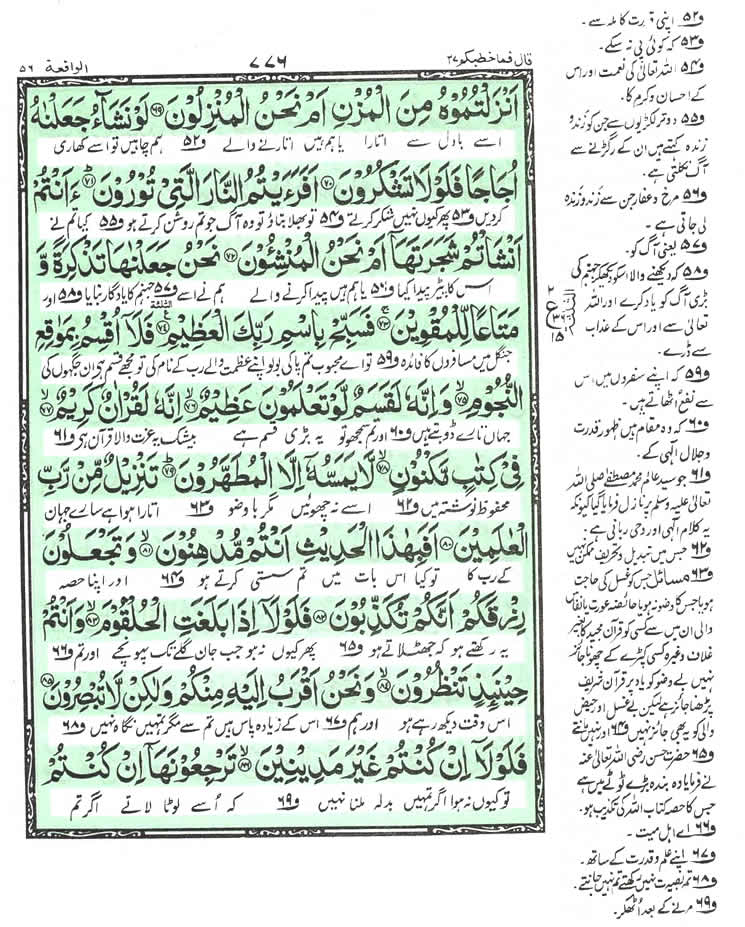 قال فما خطبکم ۲۷
۷۷۶
الواقعة ۵۶
اَنْزَلْتُمُوْهُ مِنَ الْمُزْنِ اَمْ نَحْنُ الْمُنْزِلُوْنَ ﴿۶۹﴾ لَوْ نَشَآءُ جَعَلْنٰهُ
اسے بادل سے اتارا یا ہم ہیں اتارنے والے ف۵۲ ہم چاہیں تو اسے کھاری
اُجَاجًا فَلَوْلَا تَشْكُرُوْنَ ﴿۷۰﴾ اَفَرَءَيْتُمُ النَّارَ الَّتِيْ تُوْرُوْنَ ﴿۷۱﴾ ءَاَنْتُمْ
کردیں ف۵۳ پھر کیوں نہیں شکر کرتے ف۵۴ تو بھلا بتاؤ تو وہ آگ جو تم روشن کرتے ہو ف۵۵ کیا تم نے
اَنْشَاْتُمْ شَجَرَتَهَاۤ اَمْ نَحْنُ الْمُنْشِـُٔوْنَ ﴿۷۲﴾ نَحْنُ جَعَلْنٰهَا تَذْكِرَةً وَّ
اس کا پیڑ پیدا کیا ف۵۶ یا ہم ہیں پیدا کرنے والے ہم نے اسے ف۵۷ جہنم کا یادگار بنایا ف۵۸ اور
مَتَاعًا لِّلْمُقْوِيْنَ ﴿۷۳﴾ فَسَبِّحْ بِاسْمِ رَبِّكَ الْعَظِيْمِ ﴿۷۴﴾ فَلَاۤ اُقْسِمُ بِمَوٰقِعِ
جنگل میں مسافروں کا فائدہ ف۵۹ تو اے محبوب تم پاکی بولو اپنے عظمت والے رب کے نام کی تو مجھے قسم ہے ان جگہوں کی
النُّجُوْمِ ﴿۷۵﴾ وَاِنَّهٗ لَقَسَمٌ لَّوْ تَعْلَمُوْنَ عَظِيْمٌ ﴿۷۶﴾ اِنَّهٗ لَقُرْاٰنٌ كَرِيْمٌ ﴿۷۷﴾
جہاں تارے ڈوبتے ہیں ف۶۰ اور تم سمجھو تو یہ بڑی قسم ہے بیشک یہ عزت والا قرآن ہے ف۶۱
فِيْ كِتٰبٍ مَّكْنُوْنٍ ﴿۷۸﴾ لَّا يَمَسُّهٗۤ اِلَّا الْمُطَهَّرُوْنَ ﴿۷۹﴾ تَنْزِيْلٌ مِّنْ رَّبِّ
محفوظ نوشتہ میں ف۶۲ اسے نہ چھوئیں مگر با وضو ف۶۳ اتارا ہوا ہے سارے جہان
الْعٰلَمِيْنَ ﴿۸۰﴾ اَفَبِهٰذَا الْحَدِيْثِ اَنْتُمْ مُّدْهِنُوْنَ ﴿۸۱﴾ وَتَجْعَلُوْنَ
کے رب کا تو کیا اس بات میں تم سستی کرتے ہو ف۶۴ اور اپنا حصہ
رِزْقَكُمْ اَنَّكُمْ تُكَذِّبُوْنَ ﴿۸۲﴾ فَلَوْلَاۤ اِذَا بَلَغَتِ الْحُلْقُوْمَ ﴿۸۳﴾ وَاَنْتُمْ
یہ رکھتے ہو کہ جھٹلاتے ہو ف۶۵ پھر کیوں نہ ہو جب جان گلے تک پہونچے اور تم ف۶۶
حِيْنَىِٕذٍ تَنْظُرُوْنَ ﴿۸۴﴾ وَنَحْنُ اَقْرَبُ اِلَيْهِ مِنْكُمْ وَلٰكِنْ لَّا تُبْصِرُوْنَ ﴿۸۵﴾
اس وقت دیکھ رہے ہو اور ہم ف۶۷ اس کے زیادہ پاس ہیں تم سے مگر تمہیں نگاہ نہیں ف۶۸
فَلَوْلَاۤ اِنْ كُنْتُمْ غَيْرَ مَدِيْنِيْنَ ﴿۸۶﴾ تَرْجِعُوْنَهَاۤ اِنْ كُنْتُمْ
تو کیوں نہ ہوا اگر تمہیں بدلہ ملنا نہیں ف۶۹ کہ اُسے لوٹا لاتے اگر تم
ف۵۲ اپنی قدرت کاملہ سے۔
ف۵۳ کہ کوئی پی نہ سکے۔
ف۵۴ اللہ تعالیٰ کی نعمت اور اس
کے احسان و کرم کا۔
ف۵۵ دو تر لکڑیوں سے جن کو زند و
زندہ کہتے ہیں ان کے رگڑنے سے
آگ نکلتی ہے۔
ف۵۶ مرخ و عفار جن سے زند و زندہ
لی جاتی ہے۔
ف۵۷ یعنی آگ کو۔
ف۵۸ کہ دیکھنے والا اسکو دیکھکر جہنم کی
بڑی آگ کو یاد کرے اور اللہ
تعالیٰ سے اور اس کے عذاب
سے ڈرے۔
ف۵۹ کہ اپنے سفروں میں اس
سے نفع اٹھاتے ہیں۔
ف۶۰ کہ وہ مقام ہیں ظہور قدرت
و جلال الٰہی کے۔
ف۶۱ جو سید عالم محمد مصطفےٰ صلی اللہ
تعالیٰ علیہ وسلم پر نازل فرمایا گیا کیونکہ
یہ کلام الٰہی اور وحی ربانی ہے۔
ف۶۲ جس میں تبدیل و تحریف ممکن نہیں
ف۶۳ مسائل جس کو غسل کی حاجت
ہو یا جس کا وضو نہ ہو یا حائضہ عورت یا نفاس
والی ان میں سے کسی کو قرآن مجید کا بغیر
غلاف وغیرہ کسی کپڑے کے چھونا جائز
نہیں بے وضو کو یاد پر قرآن شریف
پڑھنا جائز ہے لیکن بے غسل اور حیض
والی کو یہ بھی جائز نہیں ف۶۴ اور نہیں مانتے
ف۶۵ حضرت حسن رضی اللہ تعالیٰ عنہ
نے فرمایا وہ بندہ بڑے ٹوٹے میں ہے
جس کا حصہ کتاب اللہ کی تکذیب ہو۔
ف۶۶ اے اہل میت۔
ف۶۷ اپنے علم و قدرت کے ساتھ۔
ف۶۸ تم بصیرت نہیں رکھتے تم نہیں جانتے۔
ف۶۹ مرنے کے بعد اُٹھکر۔